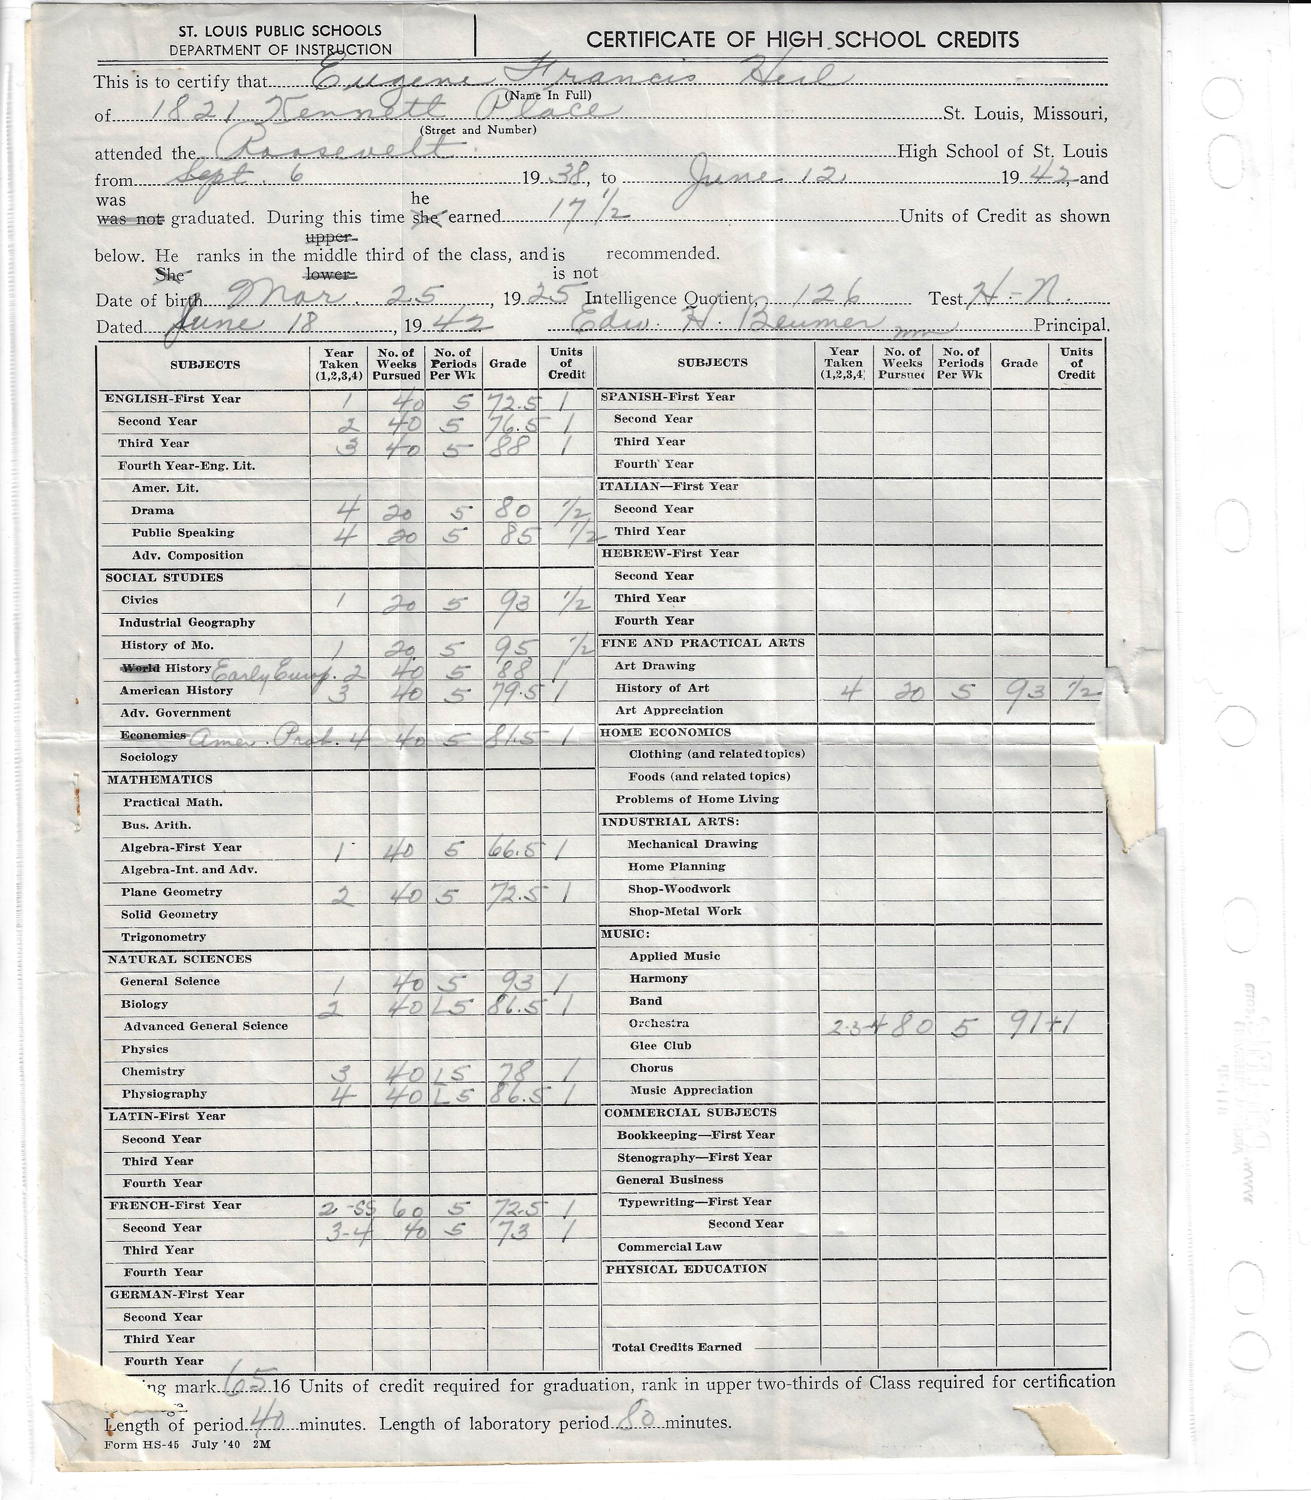 ST. LOUIS PUBLIC SCHOOLS
DEPARTMENT OF INSTRUCTION
CERTIFICATE OF HIGH SCHOOL CREDITS
This is to certify that Eugene Francis Heil
(Name In Full)
of 1821 Kennett Place St. Louis, Missouri,
(Street and Number)
attended the Roosevelt High School of St. Louis
from Sept. 6 1938, to June 12, 1942, and
was he
was not graduated. During this time she earned 17 1/2 Units of Credit as shown
upper
below. He ranks in the middle third of the class, and is recommended.
She lower is not
Date of birth Mar. 25, 1925 Intelligence Quotient, 126 Test H-N.
Dated June 18, 1942 Edw. H. Beumer Principal.
SUBJECTS Year Taken (1,2,3,4) No. of Weeks Pursued No. of Periods Per Wk Grade Units of Credit
ENGLISH-First Year 1 40 5 72.5 1
Second Year 2 40 5 76.5 1
Third Year 3 40 5 88 1
Fourth Year-Eng. Lit.
Amer. Lit.
Drama 4 20 5 80 1/2
Public Speaking 4 20 5 85 1/2
Adv. Composition
SOCIAL STUDIES
Civics 1 20 5 93 1/2
Industrial Geography
History of Mo. 1 20 5 95 1/2
World History Early Europ. 2 40 5 88 1
American History 3 40 5 79.5 1
Adv. Government
Economics Amer. Prob. 4 40 5 81.5 1
Sociology
MATHEMATICS
Practical Math.
Bus. Arith.
Algebra-First Year 1 40 5 66.5 1
Algebra-Int. and Adv.
Plane Geometry 2 40 5 72.5 1
Solid Geometry
Trigonometry
NATURAL SCIENCES
General Science 1 40 5 93 1
Biology 2 40 L5 86.5 1
Advanced General Science
Physics
Chemistry 3 40 L5 78 1
Physiography 4 40 L5 86.5 1
LATIN-First Year
Second Year
Third Year
Fourth Year
FRENCH-First Year 2-SS 60 5 72.5 1
Second Year 3-4 40 5 73 1
Third Year
Fourth Year
GERMAN-First Year
Second Year
Third Year
Fourth Year
SUBJECTS Year Taken (1,2,3,4 No. of Weeks Pursued No. of Periods Per Wk Grade Units of Credit
SPANISH-First Year
Second Year
Third Year
Fourth Year
ITALIAN—First Year
Second Year
Third Year
HEBREW-First Year
Second Year
Third Year
Fourth Year
FINE AND PRACTICAL ARTS
Art Drawing
History of Art 4 20 5 93 1/2
Art Appreciation
HOME ECONOMICS
Clothing (and related topics)
Foods (and related topics)
Problems of Home Living
INDUSTRIAL ARTS:
Mechanical Drawing
Home Planning
Shop-Woodwork
Shop-Metal Work
MUSIC:
Applied Music
Harmony
Band
Orchestra 2-3-4 80 5 91+1
Glee Club
Chorus
Music Appreciation
COMMERCIAL SUBJECTS
Bookkeeping—First Year
Stenography—First Year
General Business
Typewriting—First Year
Second Year
Commercial Law
PHYSICAL EDUCATION
Total Credits Earned
ing mark 65 16 Units of credit required for graduation, rank in upper two-thirds of Class required for certification
Length of period 40 minutes. Length of laboratory period 80 minutes.
Form HS-45 July '40 2M